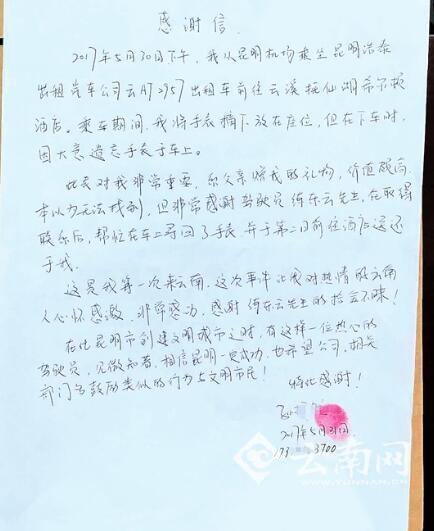 感谢信
2017年5月30日下午,我从昆明机场乘坐昆明浩泰
出租汽车公司云AT2957出租车前往玉溪抚仙湖希尔顿
酒店。乘车期间,我将手表摘下放在座位,但在下车时,
因大意遗忘手表于车上。
此表对我非常重要,系父亲赠我的礼物,价值颇高,
本以为无法找到,但非常感谢驾驶员 东云先生,在取得
联系后,帮忙在车上寻回了手表并于第二日前往酒店送还
于我。
这是我第一次来云南,这次事件让我对热情的云南
人心怀感激,非常感动,感谢 东云先生的拾金不昧!
在此昆明市创建文明城市之时,有这样一位热心的
驾驶员,见微知著,相信昆明一定成功,也希望公司,相关
部门多鼓励类似的行为与文明市民!
特此感谢!
2017年5月31日
173 3700
云南网
WWW.YUNNAN.CN